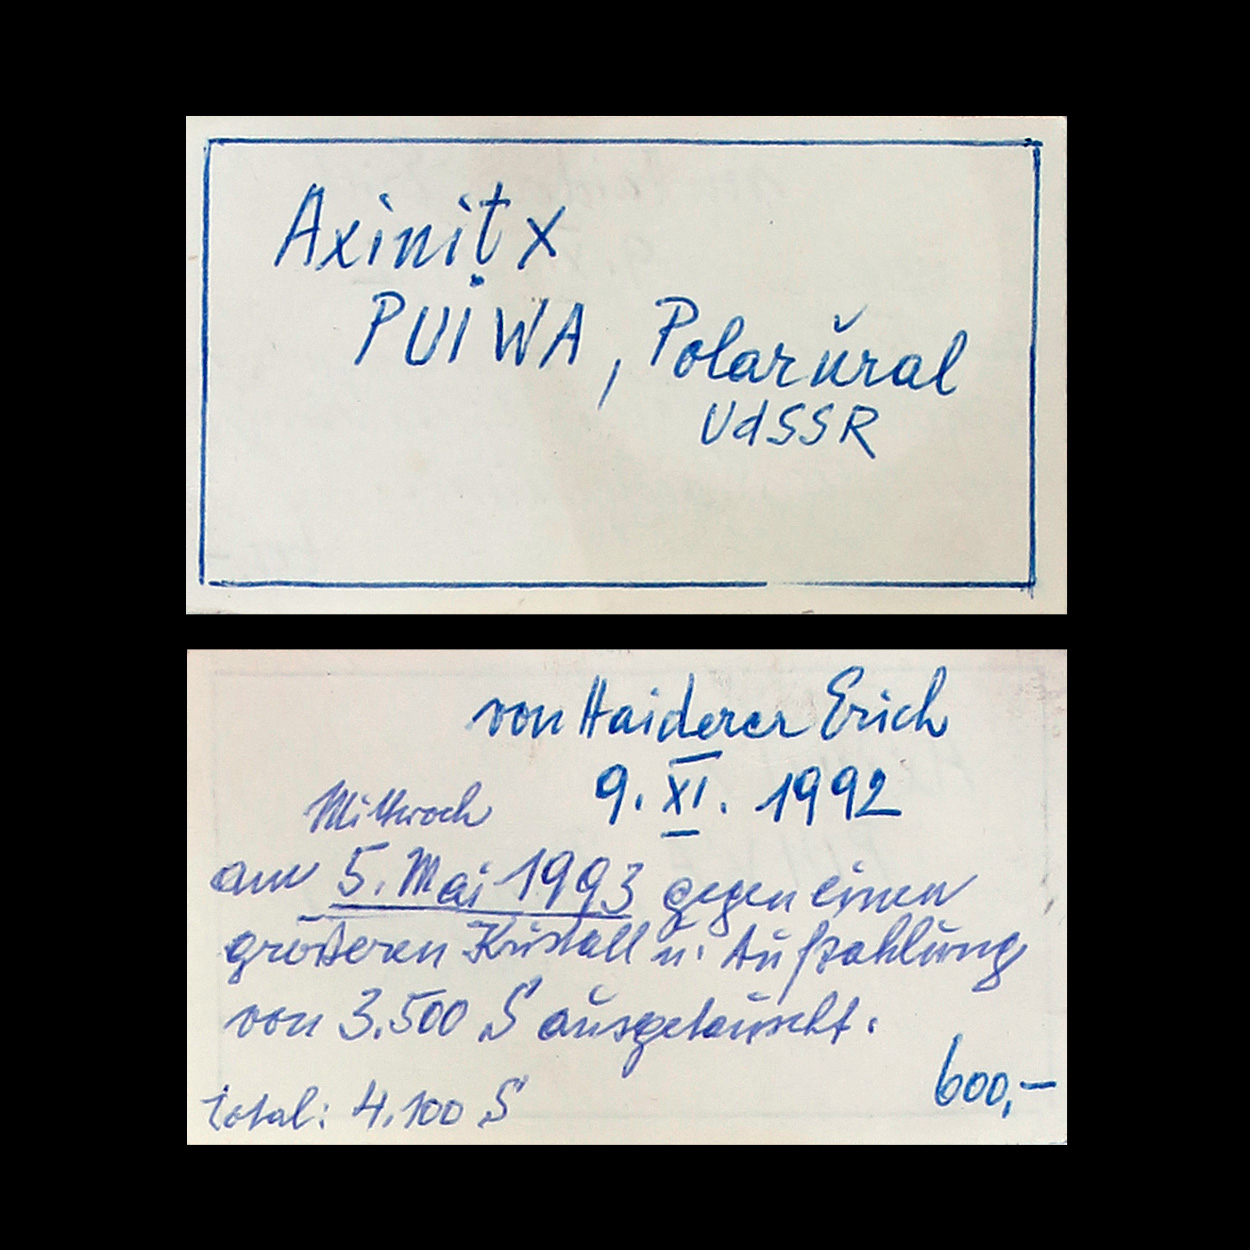 Axinit x
PUiWA, Polarŭral
UdSSR
von Haiderer Erich
9. XI. 1992
Mittwoch
am 5. Mai 1993 gegen einen
größeren Kristall u. Aufzahlŭng
von 3.500 S aŭsgetaŭscht.
600,–
total: 4.100 S